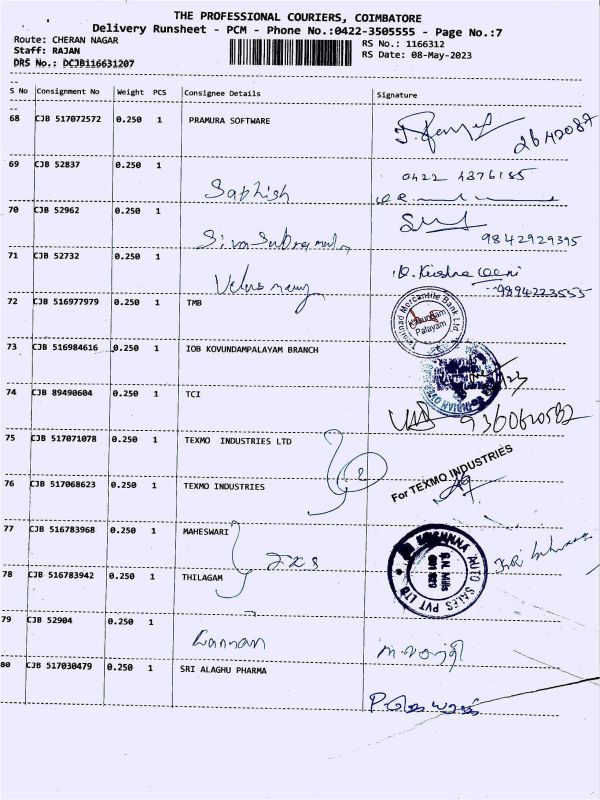 THE PROFESSIONAL COURIERS, COIMBATORE
Delivery Runsheet - PCM - Phone No.:0422-3505555 - Page No.:7
Route: CHERAN NAGAR RS No.: 1166312
Staff: RAJAN RS Date: 08-May-2023
DRS No.: DCJB116631207
S No Consignment No Weight PCS Consignee Details Signature
68 CJB 517072572 0.250 1 PRAMURA SOFTWARE
69 CJB 52837 0.250 1 Sathish 0422 4376185
70 CJB 52962 0.250 1 9842929395
71 CJB 52732 0.250 1 9894223555
72 CJB 516977979 0.250 1 TMB Tamilnad Mercantile Bank Ltd. Kavundam Palayam
73 CJB 516984616 0.250 1 IOB KOVUNDAMPALAYAM BRANCH
74 CJB 89490604 0.250 1 TCI 9360620582
75 CJB 517071078 0.250 1 TEXMO INDUSTRIES LTD
76 CJB 517068623 0.250 1 TEXMO INDUSTRIES For TEXMO INDUSTRIES
77 CJB 516783968 0.250 1 MAHESWARI
78 CJB 516783942 0.250 1 THILAGAM KRISHNNA AUTO SALES PVT LTD. S.N. Mills 641 029
79 CJB 52904 0.250 1 Kannan
80 CJB 517030479 0.250 1 SRI ALAGHU PHARMA